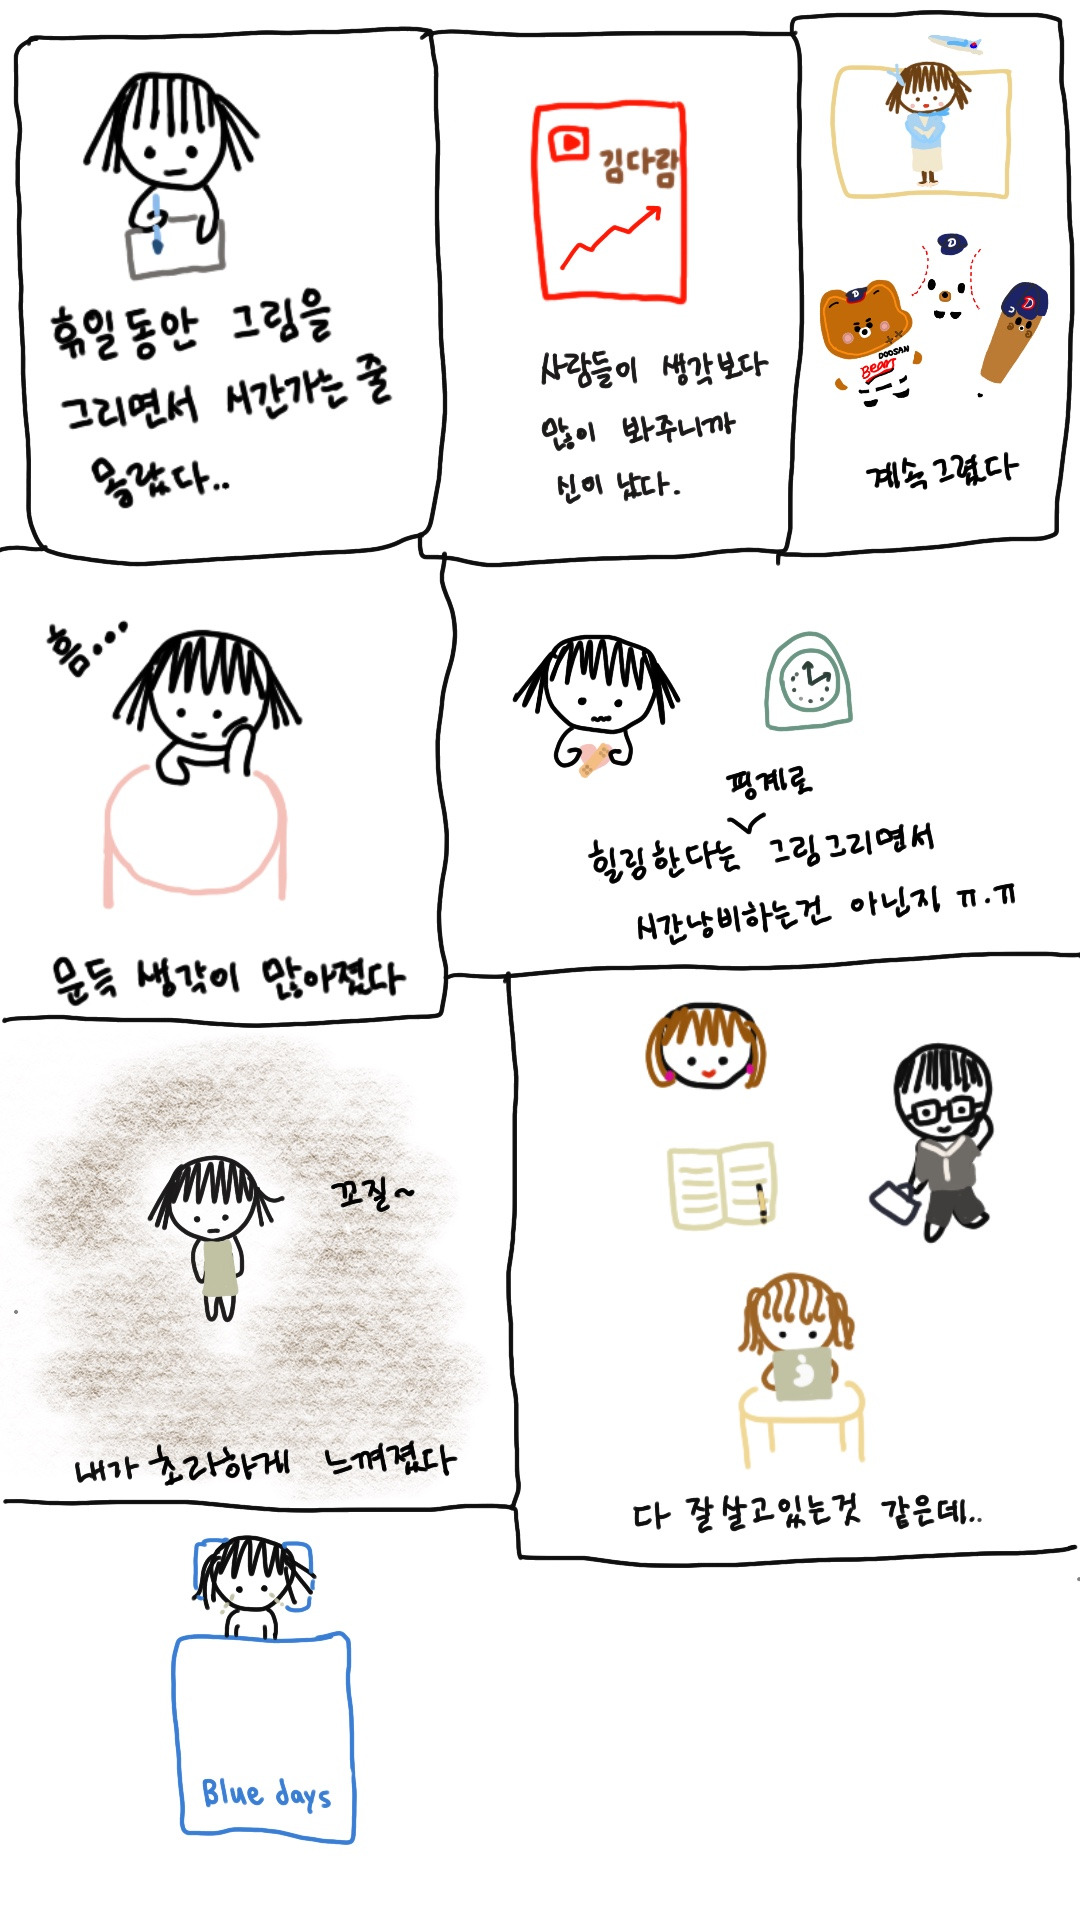 휴일동안 그림을
그리면서 시간가는 줄
몰랐다..
김다람
사람들이 생각보다
많이 봐주니까
신이 났다.
D
D
D
DOOSAN
BEAST
계속 그렸다
흠...
문득 생각이 많아졌다
핑계로
힐링한다는 그림그리면서
시간낭비하는건 아닌지 ㅠ.ㅠ
꼬질~
내가 초라하게 느껴졌다
다 잘 살고있는것 같은데..
Blue days